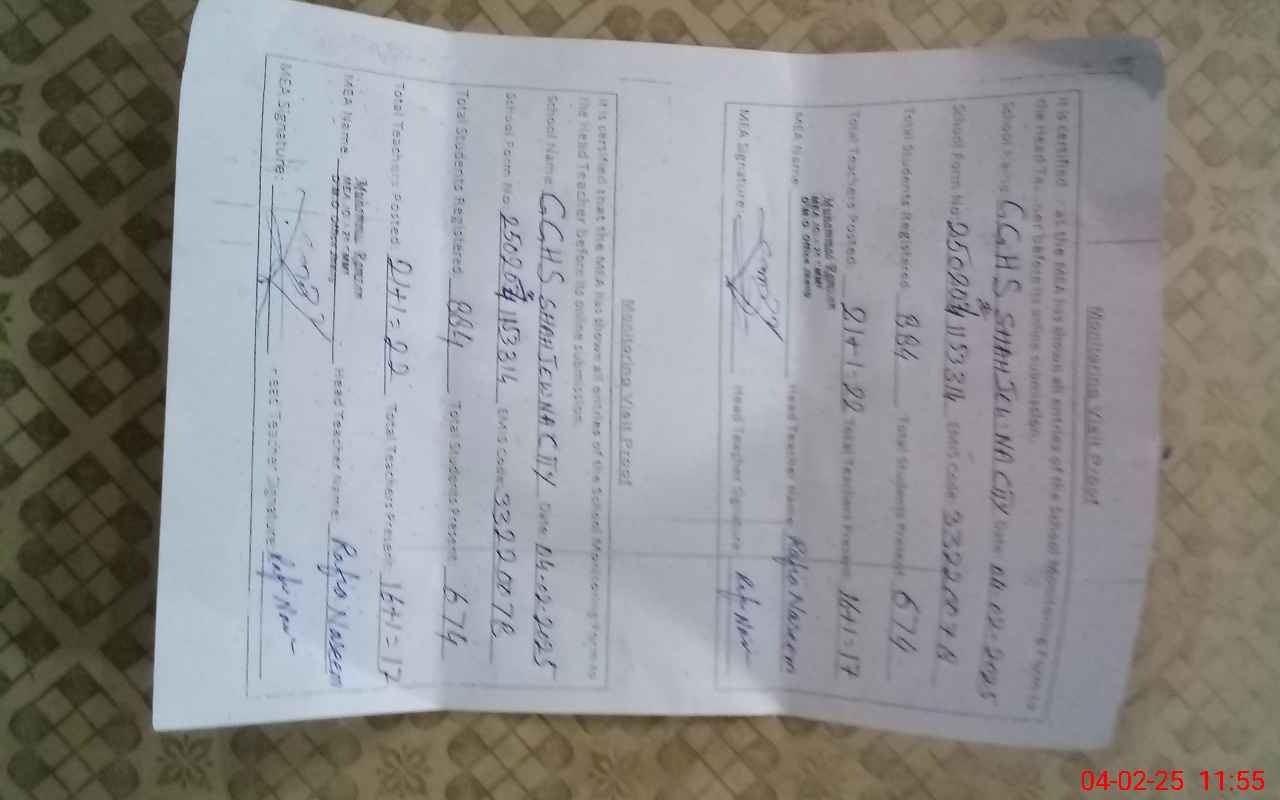 Monitoring Visit Proof
It is certified at the MEA has shown all entries of the School Monitoring Form to
the Head Te her before its online submission.
School Name GGHS SHAH JEWNA CITY Date 04-02-2025
School Form No 2502041153314 EMIS Code 33220078
Total Students Registered 884 Total Students Present 674
Total Teachers Posted 21+1=22 Total Teachers Present 16+1=17
Muhammad Ramzan
MEA Name Head Teacher Name Rafia Naseem
MEA Signature Head Teacher Signature
Monitoring Visit Proof
It is certified that the MEA has shown all entries of the School Monitoring Form to
the Head Teacher before its online submission.
School Name GGHS SHAH JEWNA CITY Date 04-02-2025
School Form No. 2502041153314 EMIS Code 33220078
Total Students Registered 884 Total Students Present 674
Total Teachers Posted 21+1=22 Total Teachers Present 16+1=17
Muhammad Ramzan
MEA Name Head Teacher Name Rafia Naseem
MEA Signature: Head Teacher Signature
04-02-25 11:55